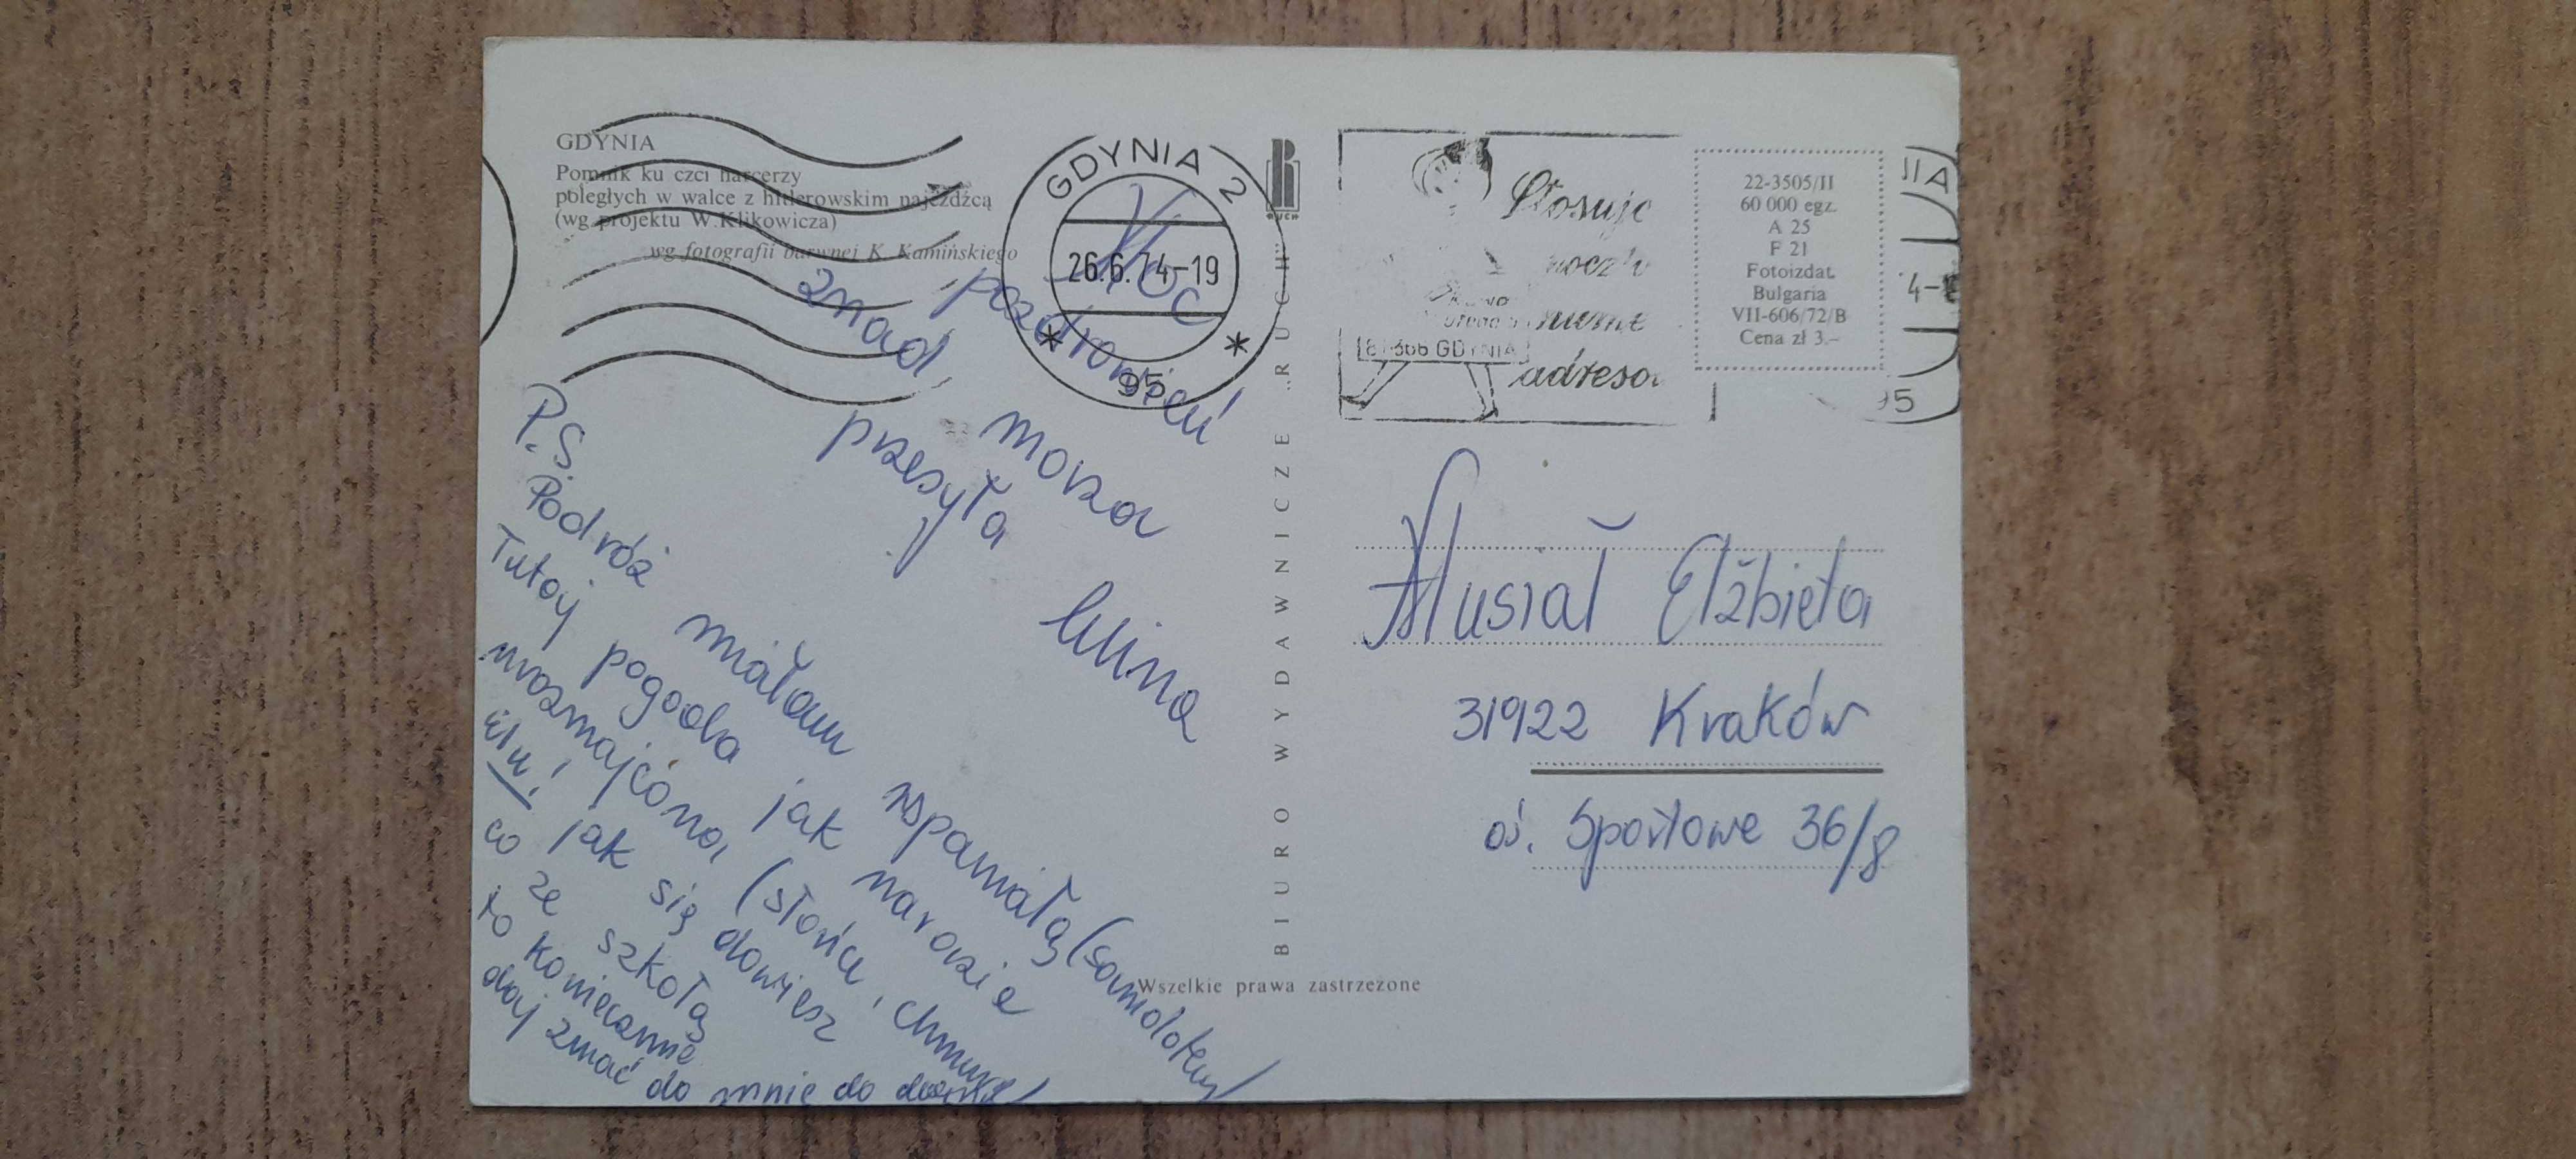 GDYNIA
Pomnik ku czci harcerzy
poległych w walce z hitlerowskim najeźdźcą
(wg projektu W. Klikowicza)
wg fotografii barwnej K. Kamińskiego
GDYNIA 2
26.6.74-19
95
Moc
pozdrowień
znad morza
przesyła
Alina
P.S
Podróż miałam wspaniałą (samolotem)
Tutaj pogoda jak na razie
urozmajcona (słońce, chmury)
Elu! jak się dowiesz
co ze szkołą
to koniecznie
daj znać do mnie do domu
BIURO WYDAWNICZE „RUCH"
RUCH
Stosuje
adreso
81-366 GDYNIA
22-3505/II
60 000 egz.
A 25
F 21
Fotoizdat.
Bulgaria
VII-606/72/B
Cena zł 3.-
NIA
4-
95
Musiał Elżbieta
31922 Kraków
oś. Sportowe 36/8
Wszelkie prawa zastrzeżone